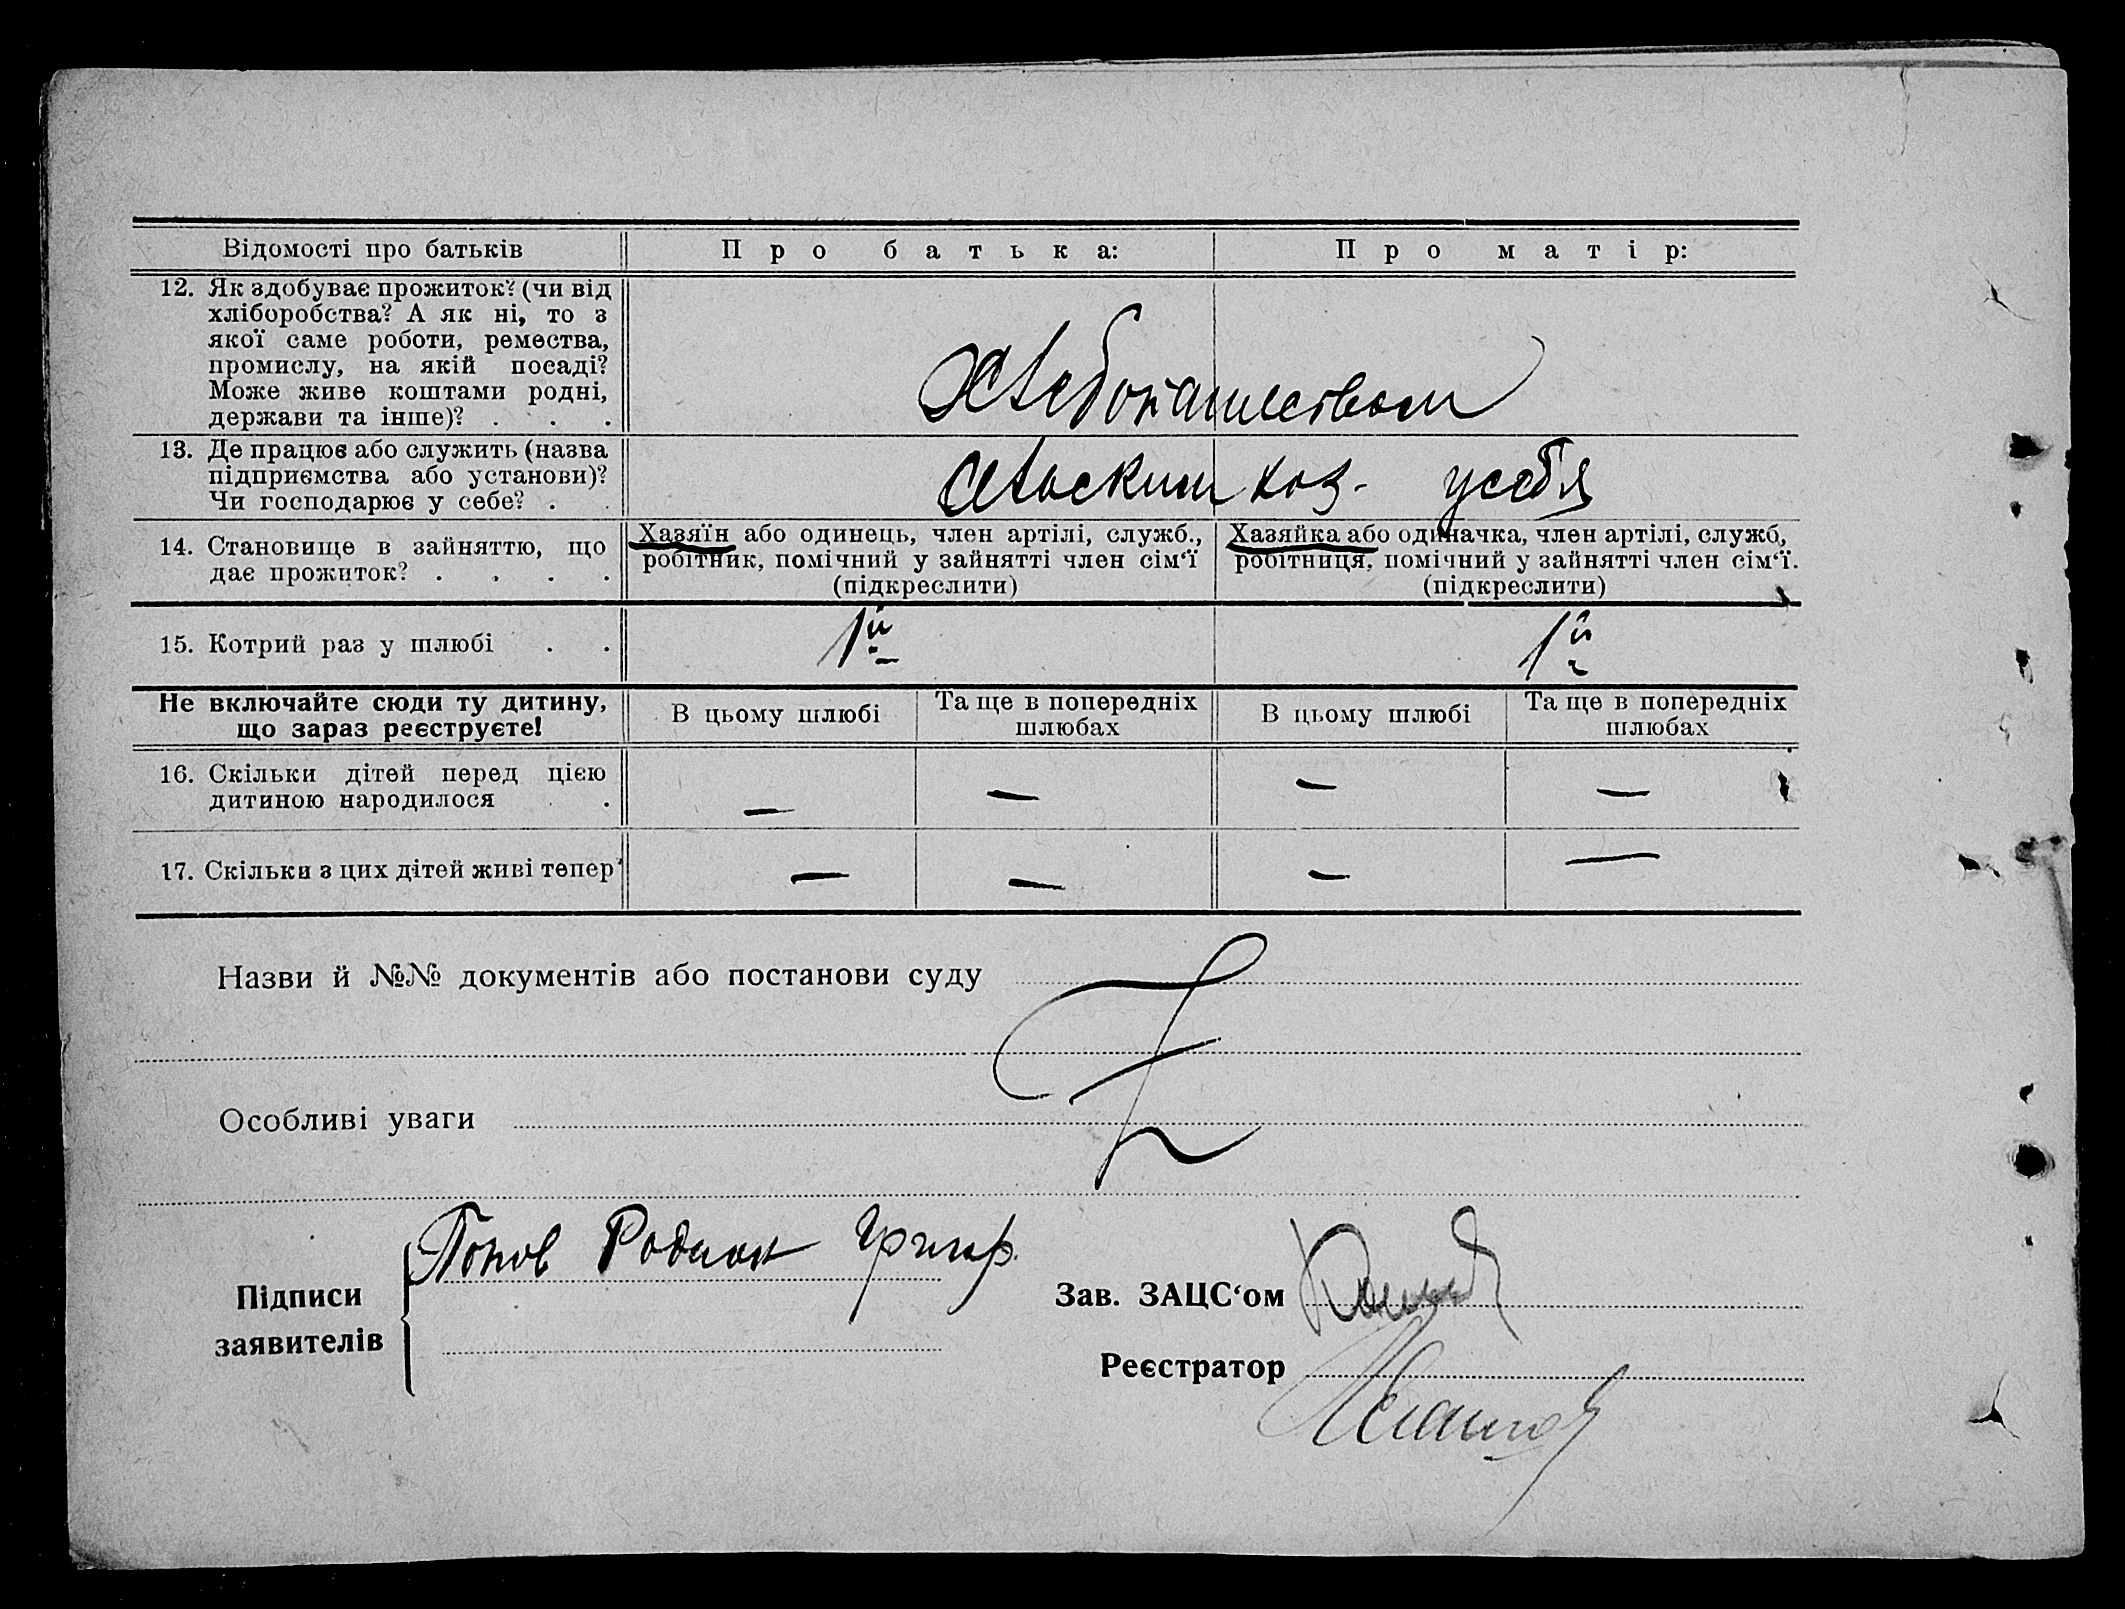 Відомості про батьків Про батька: Про матір:
12. Як здобуває прожиток? (чи від
хліборобства? А як ні, то з
якої саме роботи, ремества,
промислу, на якій посаді?
Може живе коштами родні,
держави та інше)? . . .
Хлебопашеством
13. Де працює або служить (назва
підприємства або установи)?
Чи господарює у себе? . .
сельским хоз. у себя
14. Становище в зайняттю, що
дає прожиток? . . . .
Хазяїн або одинець, член артілі, служб.,
робітник, помічний у зайнятті член сім‘ї
(підкреслити)
Хазяйка або одиначка, член артілі, служб,
робітниця, помічний у зайнятті член сім‘ї.
(підкреслити)
15. Котрий раз у шлюбі . . 1й 1й
Не включайте сюди ту дитину,
що зараз реєструєте!
В цьому шлюбі
Та ще в попередніх
шлюбах
В цьому шлюбі
Та ще в попередніх
шлюбах
16. Скільки дітей перед цією
дитиною народилося .
— — — —
17. Скільки з цих дітей живі тепер? — — — —
Назви й №№ документів або постанови суду
Особливі уваги
Підписи
заявителів
Попов Родион Григор.
Зав. ЗАЦС‘ом
Реєстратор